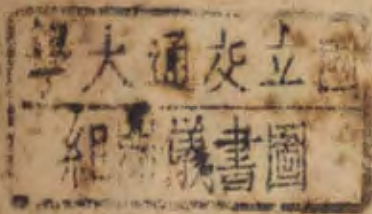 國立交通大學
圖書儀組